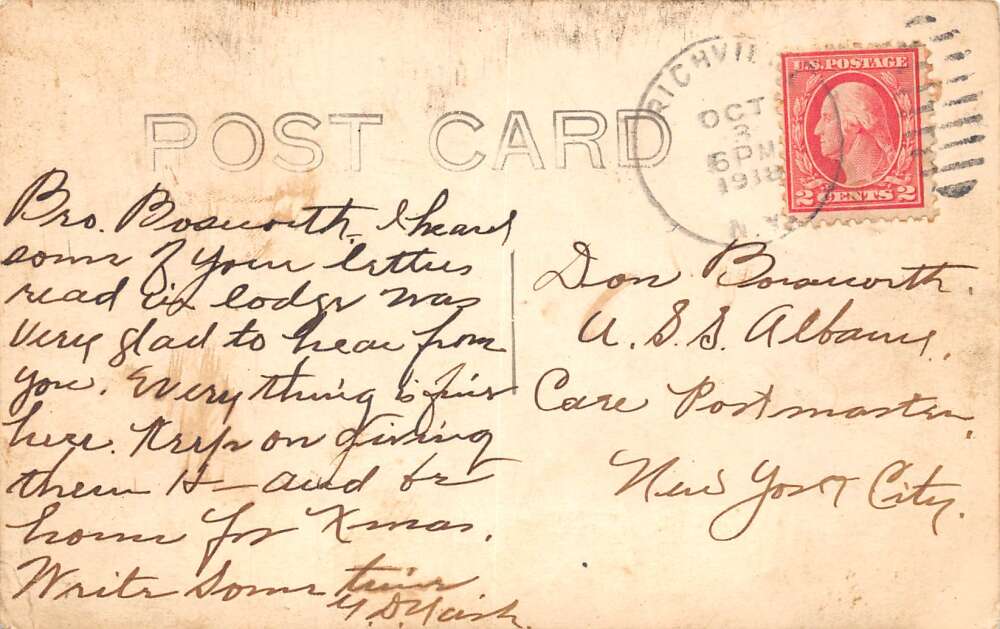 POST CARD
RICHVIL
OCT
3
6 PM
1918
N.Y.
U.S. POSTAGE
2 CENTS 2
Bro. Bosworth, I heard
some of your letters
read in lodge was
very glad to hear from
you. Everything is fine
here. Keep on giving
them H— and be
home for Xmas.
Write some time
Don Bosworth.
U.S.S. Albany,
Care Postmaster,
New York City.